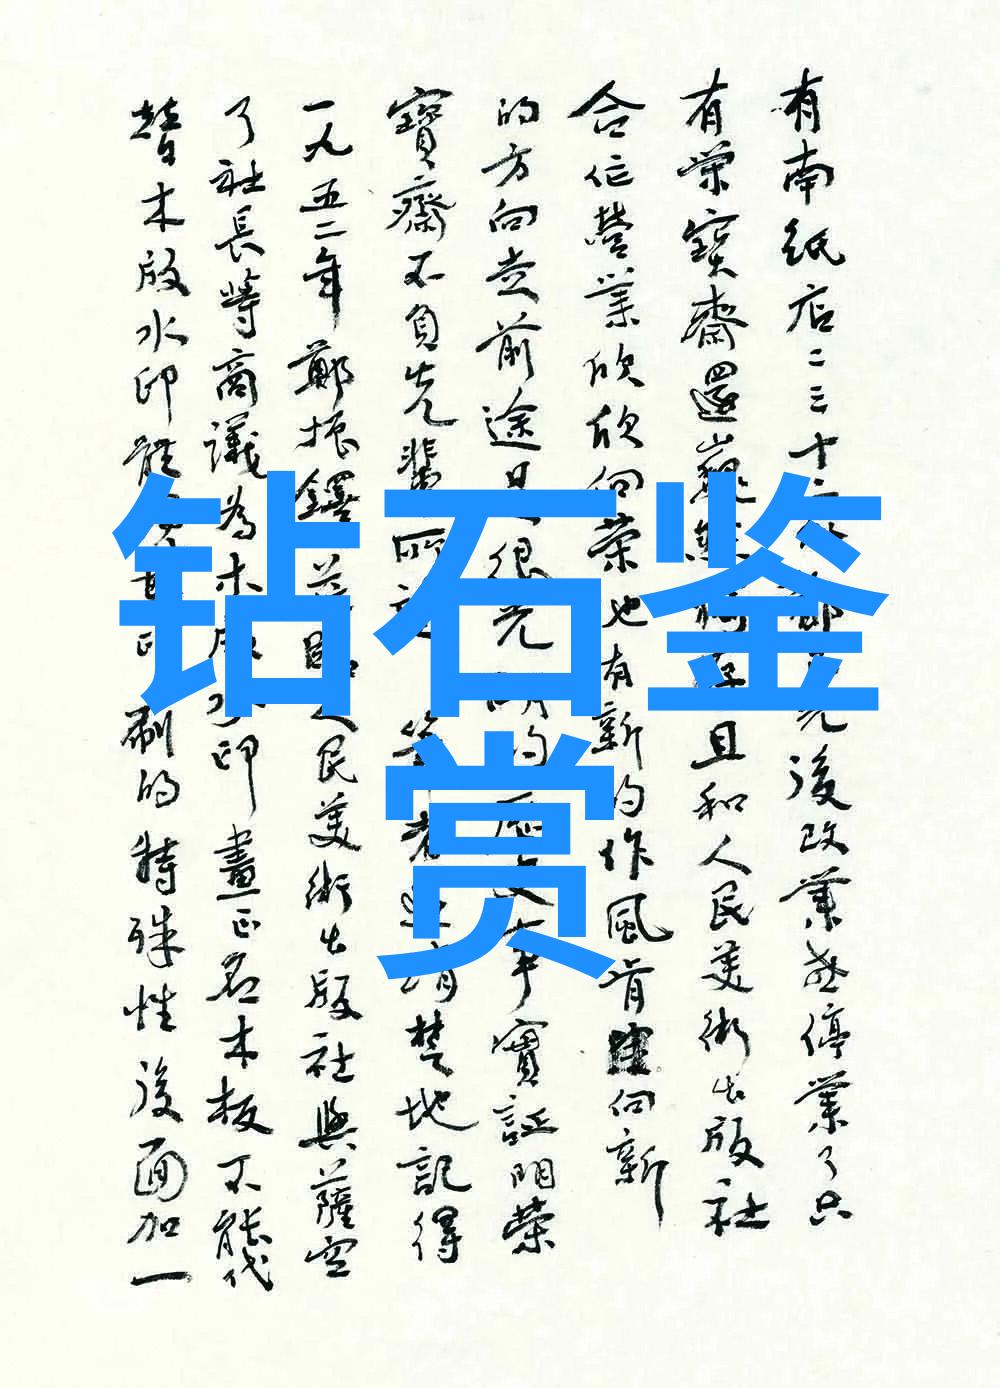 有南纸店二三十
後改業或停業了只
有荣寳齋還
且和人民美術出版社
合作營業欣欣向荣也有新的作風肯向新
的方向走前途是很光明的
事實証明荣
寳齋不負先輩所
清楚地記得
一九五二年鄭振鐸
人民美術出版社與薩空
了社長等商議為木版水印畫正名木板不能代
替木版水印
刷的特殊性後面加一
钻石鉴
赏